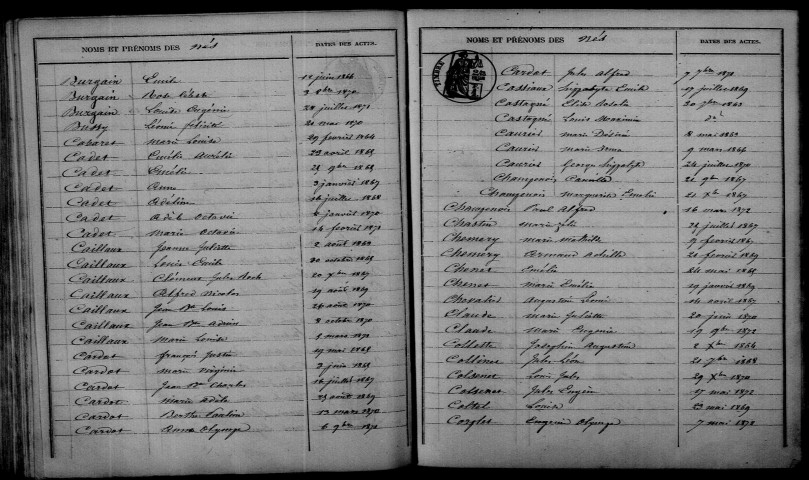 NOMS ET PRÉNOMS DES nés DATES DES ACTES.
Burgain Emile 12 juin 1866
Burgain Rose 3 8bre 1870
Burgain Louise Eugénie 28 juillet 1871
Bussy Léonie félicité 1870
Cabaret Marie Louise 29 fevrier 1864
Cadet Emélie Aurélie 22 avril 1865
Cadet Emélie 21 9bre 1865
Cadet Anne 3 janvier 1867
Cadet Adeline 16 juillet 1868
Cadet Adèle Octavie 6 janvier 1870
Cadet Marie Octavie 14 fevrier 1871
Caillaux Jeanne Juliette 2 aout 1863
Caillaux Louis Emile 20 octobre 1865
Caillaux Clémence Jules 20 Xbre 1867
Caillaux Alfred Nicolas 19 aout 1869
Caillaux Jean Bte Louis 26 aout 1870
Caillaux Jean Bte 8 octobre 1870
Caillaux Marie Louise mars 1872
Cardot françois Justin 19 mai 1865
Cardot Marie Virginie 2 juin 1865
Cardot Jean Bte Charles 16 juillet 1867
Cardot Marie Adèle 23 aout 1869
Cardot Berthe 13 mars 1870
Cardot Anna Olympe 6 9bre 1872
NOMS ET PRÉNOMS DES nés DATES DES ACTES.
TIMBRE
Cardot Jules Alfred 7 7bre 1872
Cassiaux Hippolyte Emile 17 juillet 1869
Castagné Elisée Rosalie 20 7bre 1863
Castagné Louis Maximin do
Cauriès Marie Désirée 8 mai 1863
Cauriès Marie Anna 9 mars 1866
Cauriès George Hippolyte 24 juillet 1870
Champenois Camille 21 9bre 1867
Champenois Marguerite Emélie 21 Xbre 1867
Champenois Paul Alfred 16 mars 1872
Marie 28 juillet 1867
Chemery Marie Mathilde 9 fevrier 1867
Chemery Armand 20 fevrier 1869
Chenet Emélie 24 mai 1865
Chenet Marie Emélie 19 janvier 1867
Chevalier Augustin Louis 14 avril 1867
Claude Marie Juliette 20 juin 1870
Claude Marie Eugénie 19 9bre 1872
Collette Joséphin Augustin 2 Xbre 1864
Collinet Jules Léon 21 7bre 1868
Colsenet Louis Jules 29 Xbre 1870
Colsenet Jules Eugène 17 mai 1872
Louise 23 mai 1869
Eugénie Olympe 7 mai 1872